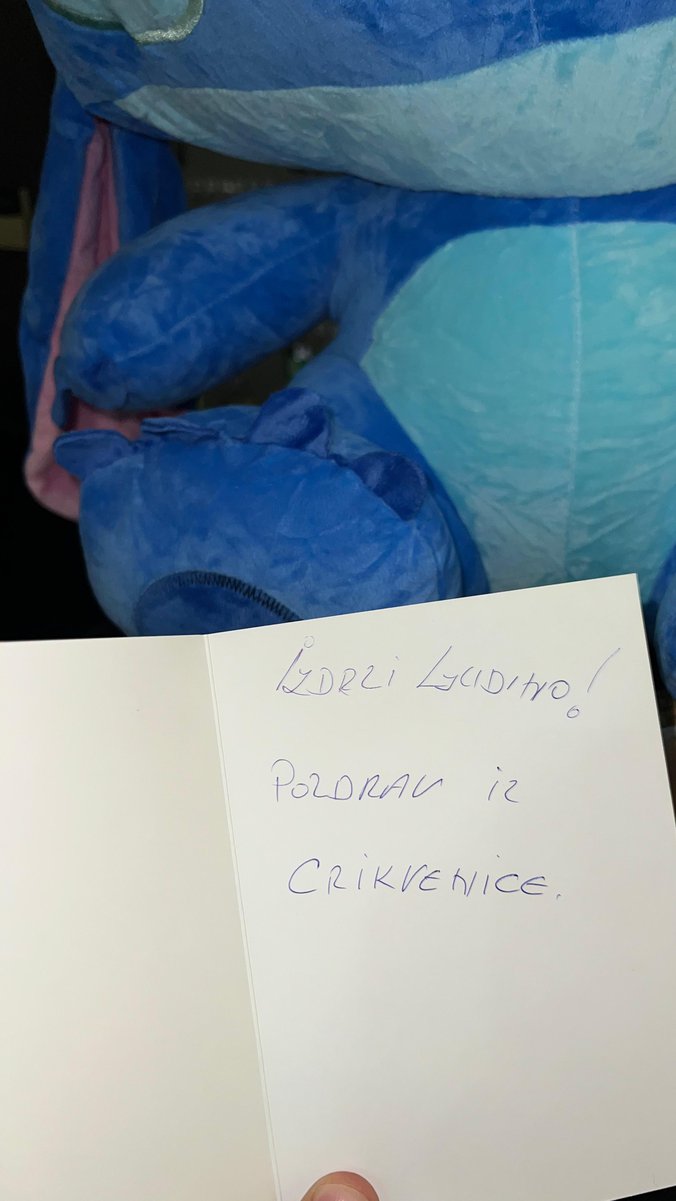 IZDRZI LJUDINO!
POZDRAV iz
CRIKVENICE.